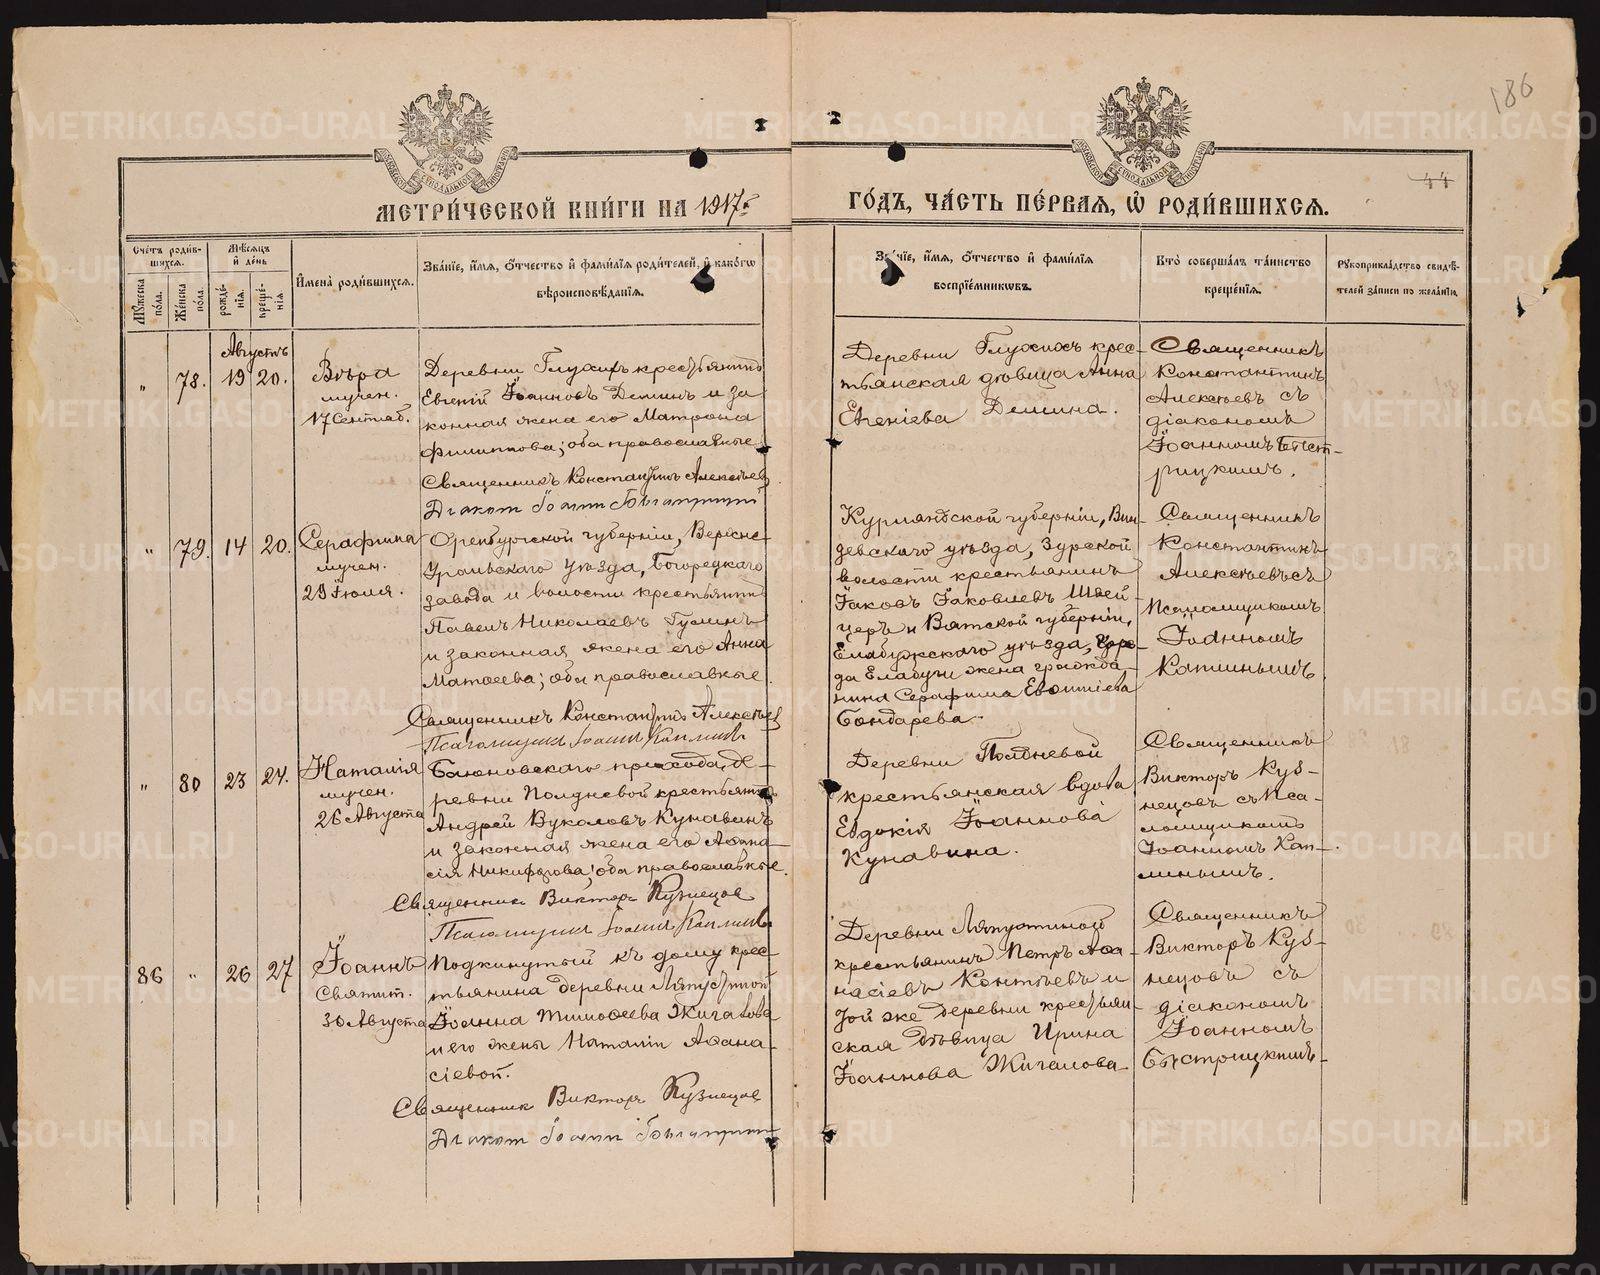 186
44
МЕТРИ́ЧЕСКОЙ КНИ́ГИ НА 1917 г.
ГО́ДЪ, ЧА́СТЬ ПЕ́РВАЯ, Ѡ҆ РОДИ́ВШИХСЯ.
Сче́тъ роди́вшихся.
Му́жеска по́ла.
Же́нска по́ла.
Мѣ́сяцъ и҆ де́нь
рожде́нїя.
креще́нїя.
И҆мена̀ роди́вшихся.
Зва́нїе, и҆́мя, ѻ҆́тчество и҆ фами́лїя роди́телей, и҆ како́гѡ
вѣроисповѣ́данїя.
Зва́нїе, и҆́мя, ѻ҆́тчество и҆ фами́лїя
воспрїе́мникѡвъ.
Кто̀ соверша́лъ та́инство
креще́нїя.
Рꙋкоприкла́дство свидѣ́телей за́писи по жела́нїю.
Августъ
" 78. 19 20.
Вѣра
мучен.
17 Сентяб.
Деревни Глухихъ крестьянинъ
Евгеній Іоанновъ Деминъ и за
конная жена его Матрона
Филиппова; оба православные
Священникъ Константинъ Алексѣевъ
Діаконъ Іоаннъ Быстрицкій
Деревни Глухихъ крес-
тьянская дѣвица Анна
Евгеніева Демина.
Священникъ
Константинъ
Алексѣевъ съ
діакономъ
Іоанномъ Быст-
рицкимъ.
" 79. 14 20.
Серафима
мучен.
29 Іюля.
Оренбургской губерніи, Верхне-
Уральскаго уѣзда,
завода и волости крестьянинъ
Павелъ Николаевъ
и законная жена его Анна
Матѳеева; оба православные.
Священникъ Константинъ Алексѣевъ
Псаломщикъ Іоаннъ Каплинъ
Курляндской губерніи, Вин-
девскаго уѣзда, Зурской
волости крестьянинъ
Іаковъ Іаковлевъ Швей-
церъ и Вятской губерніи,
Елабужскаго уѣзда, горо-
да Елабуги жена гражда-
нина Серафима
Бондарева.
Священникъ
Константинъ
Алексѣевъ съ
Псаломщикомъ
Іоанномъ
Каплинымъ.
" 80 23 24.
Наталія
мучен.
26 Августа
прихода, де-
ревни Полдневой крестьянинъ
Андрей Вуколовъ Кунавинъ
и законная жена его Аѳана-
сія Никифорова; оба православные.
Священникъ Викторъ Кузнецовъ
Псаломщикъ Іоаннъ Каплинъ
Деревни Полдневой
крестьянская вдова
Евдокія Іоаннова
Кунавина.
Священникъ
Викторъ Куз-
нецовъ съ Пса-
ломщикомъ
Іоанномъ Кап-
линымъ.
86 " 26 27
Іоаннъ
Святит.
30 Августа
Подкинутый къ дому крес-
тьянина деревни Ляпустиной
Іоанна Тимоѳеева Жигалова
и его жены Наталіи Аѳана-
сіевой.
Священникъ Викторъ Кузнецовъ
Діаконъ Іоаннъ Быстрицкій
Деревни Ляпустиной
крестьянинъ Петръ Аѳа-
насіевъ и
той же деревни крестьян-
ская дѣвица Ирина
Іоаннова Жигалова
Священникъ
Викторъ Куз-
нецовъ съ
діакономъ
Іоанномъ
Быстрицкимъ.
METRIKI.GASO-URAL.RU